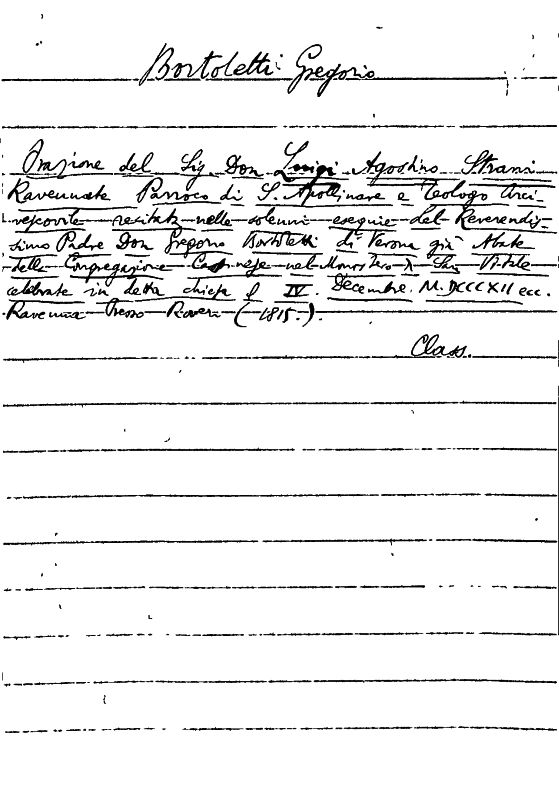 Bortoletti Gregorio
Orazione del Sig. Don Luigi Agostino Strani
Ravennate Parroco di S. Apollinare e Teologo Arci-
vescovile recitata nelle solenni esequie del Reverendis-
simo Padre Don Gregorio Bortoletti di Verona già Abate
della Congregazione Cassinese nel Monistero di San Vitale
celebrate in detta chiesa il IV. Decembre. M.DCCCXII ecc.
Ravenna Presso Roveri (-1815.-).
Class.